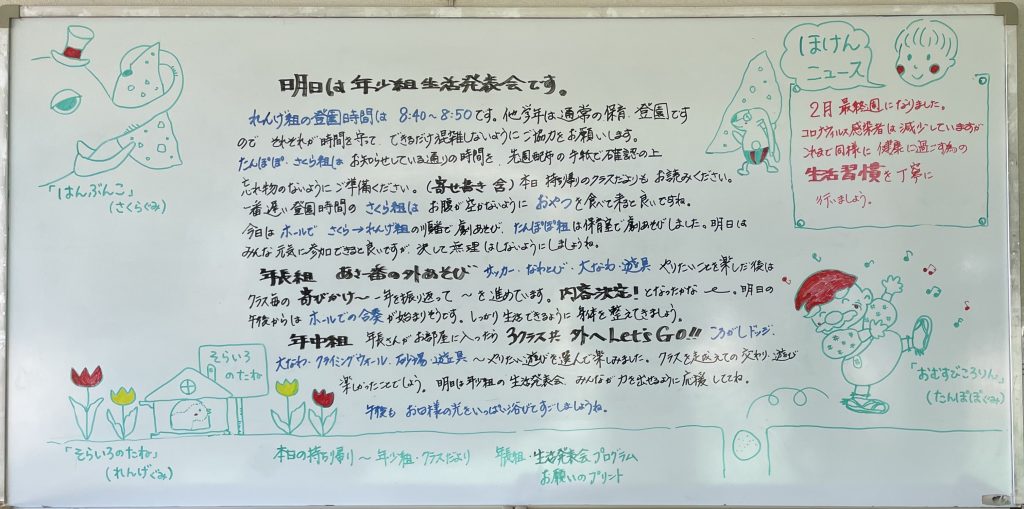 明日は年少組生活発表会です。
れんげ組の登園時間は 8:40～8:50です。他学年は通常の保育・登園です
ので それぞれが時間を守って、できるだけ混雑しないようにご協力をお願いします。
たんぽぽ・さくら組は お知らせしている通りの時間を、先週配布の手紙で確認の上
忘れ物のないようにご準備ください。(寄せ書き含) 本日持ち帰りのクラスだよりもお読みください。
一番遅い登園時間の さくら組は お腹が空かないように おやつを食べて来ると良いですね。
今日は ホールで さくら→れんげ組の順番で劇あそび、たんぽぽ組は保育室で劇あそびしました。明日は
みんな元気に参加できると良いですが、決して無理はしないようにしましょうね。
年長組 あさ一番の外あそび サッカー・なわとび・大なわ・遊具 やりたいことを楽しだ後は
クラス毎の 寄びかけ～一年を振り返って～を進めています。内容決定!となったかな～。明日の
午後からは ホールでの合奏が始まりそうです。しっかり生活できるように 身体を整えてきましょう。
年中組 年長さんがお部屋に入ったら 3クラス共 外へ Let's GO!! ころがしドッジ、
大なわ・クライミングウォール、砂場・遊具～やりたい遊びを選んで楽しみました。クラスを越えての交わり、遊び
楽しかったことでしょう。明日は年少組の生活発表会、みんなが力を出せるように応援しててね。
午後も お日様の光をいっぱい浴びてすごしましょうね。
本日の持ち帰り ～ 年少組・クラスだより 年長組・生活発表会プログラム
お願いのプリント
ほけん
ニュース
2月最終週になりました。
コロナウィルス感染者は減少していますが
これまで同様に 健康に過ごす為の
生活習慣を丁寧に
行いましょう。
「はんぶんこ」
(さくらぐみ)
そらいろ
のたね
「そらいろのたね」
(れんげぐみ)
「おむすびころりん」
(たんぽぽぐみ)